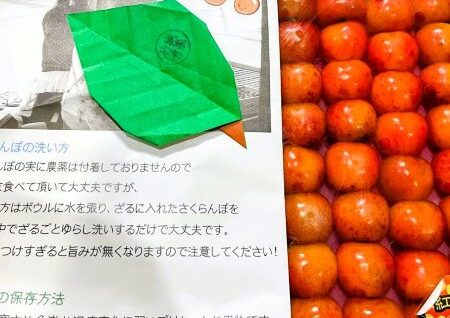 んぼの洗い方
んぼの実に農薬は付着しておりませんので
を食べて頂いて大丈夫ですが、
方はボウルに水を張り、ざるに入れたさくらんぼを
中でざるごとゆらし洗いするだけで大丈夫です。
つけすぎると旨みが無くなりますので注意してください!
の保存方法
紅